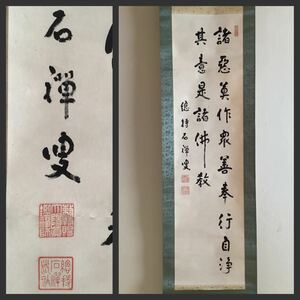 石禪叟
諸惡莫作衆善奉行自淨
其意是諸佛教
總持石禪叟